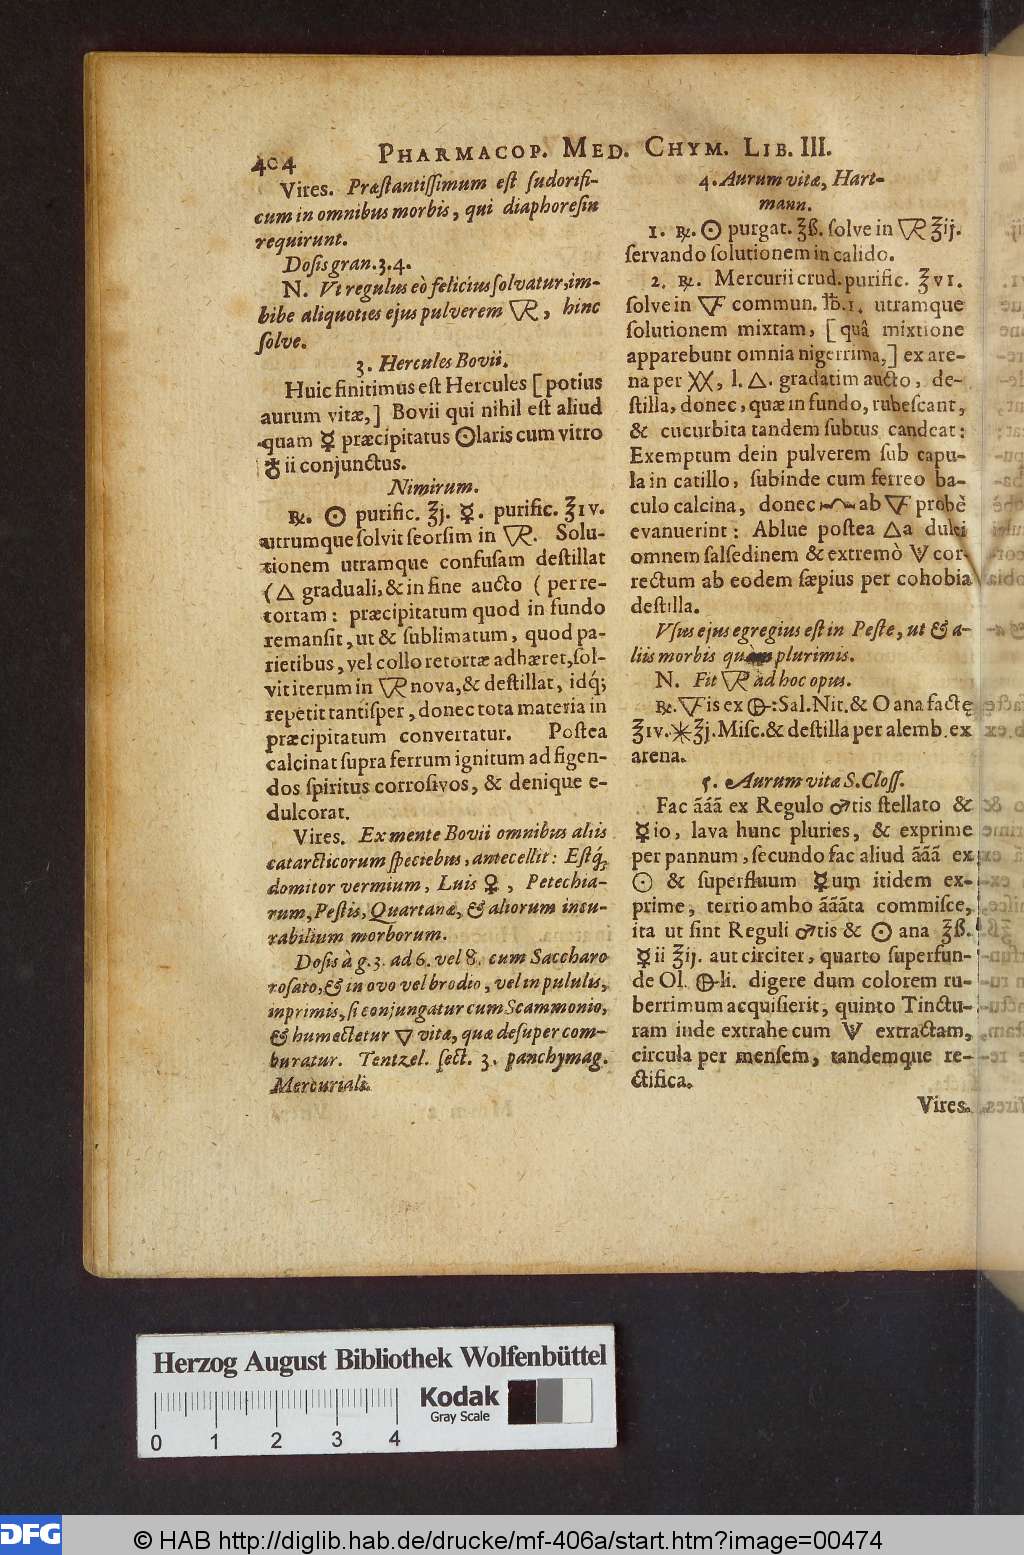 404 PHARMACOP. MED. CHYM. LIB. III.
Vires. Præſtantiſſimum eſt ſudorifi-
cum in omnibus morbis, qui diaphoreſin
requirunt.
Doſis gran. 3. 4.
N. Vt regulus eò felicius ſolvatur, im-
bibe aliquoties ejus pulverem 🜆, hinc
ſolve.
3. Hercules Bovii.
Huic finitimus eſt Hercules [potius
aurum vitæ,] Bovii qui nihil eſt aliud
quam ☿ præcipitatus ☉laris cum vitro
♁ii conjunctus.
Nimirum.
℞. ☉ purific. ℥j. ☿. purific. ℥ıv.
utrumque ſolvit ſeorſim in 🜆. Solu-
tionem utramque confuſam deſtillat
(△ graduali, & in fine aucto ( per re-
tortam: præcipitatum quod in fundo
remanſit, ut & ſublimatum, quod pa-
rietibus, vel collo retortæ adhæret, ſol-
vit iterum in 🜆 nova, & deſtillat, idq́;
repetit tantiſper, donec tota materia in
præcipitatum convertatur. Poſtea
calcinat ſupra ferrum ignitum ad figen-
dos ſpiritus corroſivos, & denique e-
dulcorat.
Vires. Ex mente Bovii omnibus aliis
catarcticorum ſpeciebus, antecellit: Eſtq́;
domitor vermium, Luis ♀, Petechia-
rum, Peſtis, Quartanæ, & aliorum incu-
rabilium morborum.
Doſis à g. 3. ad 6. vel 8. cum Saccharo
roſato, & in ovo vel brodio, vel in pululis,
inprimis, ſi conjungatur cum Scammonio,
& humectetur ▽ vitæ, quæ deſuper com-
buratur. Tentzel. ſect. 3. panchymag.
Mercuriali.
4. Aurum vitæ, Hart-
mann.
1. ℞. ☉ purgat. ℥ß. ſolve in 🜆 ℥ij.
ſervando ſolutionem in calido.
2. ℞. Mercurii crud. purific. ℥vı.
ſolve in 🜅 commun. ℔.1. utramque
ſolutionem mixtam, [quâ mixtione
apparebunt omnia nigerrima,] ex are-
na per XX, l. △. gradatim aucto, de-
ſtilla, donec, quæ in fundo, rubeſcant,
& cucurbita tandem ſubtus candeat:
Exemptum dein pulverem ſub capu-
la in catillo, ſubinde cum ferreo ba-
culo calcina, donec ab 🜅 probè
evanuerint: Ablue poſtea △a dulci
omnem ſalſedinem & extremò cor-
rectum ab eodem ſæpius per cohobia
deſtilla.
Vſus ejus egregius eſt in Peſte, ut & a-
liis morbis quàm plurimis.
N. Fit 🜆 ad hoc opus.
℞. 🜅is ex : Sal. Nit. & O ana factę
℥ıv. ✳℥j. Miſc. & deſtilla per alemb. ex
arena.
5. Aurum vitæ S. Cloſſ.
Fac ããã ex Regulo ♂tis ſtellato &
☿io, lava hunc pluries, & exprime
per pannum, ſecundo fac aliud ããã ex
☉ & ſuperfluum ☿um itidem ex-
prime, tertio ambo ãããta commiſce,
ita ut ſint Reguli ♂tis & ☉ ana ℥ß.
☿ii ℥ij. aut circiter, quarto ſuperfun-
de Ol. li. digere dum colorem ru-
berrimum acquiſierit, quinto Tinctu-
ram inde extrahe cum extractam,
circula per menſem, tandemque re-
ctifica.
Vires.
Herzog August Bibliothek Wolfenbüttel
Kodak
Gray Scale
0 1 2 3 4
DFG © HAB http://diglib.hab.de/drucke/mf-406a/start.htm?image=00474